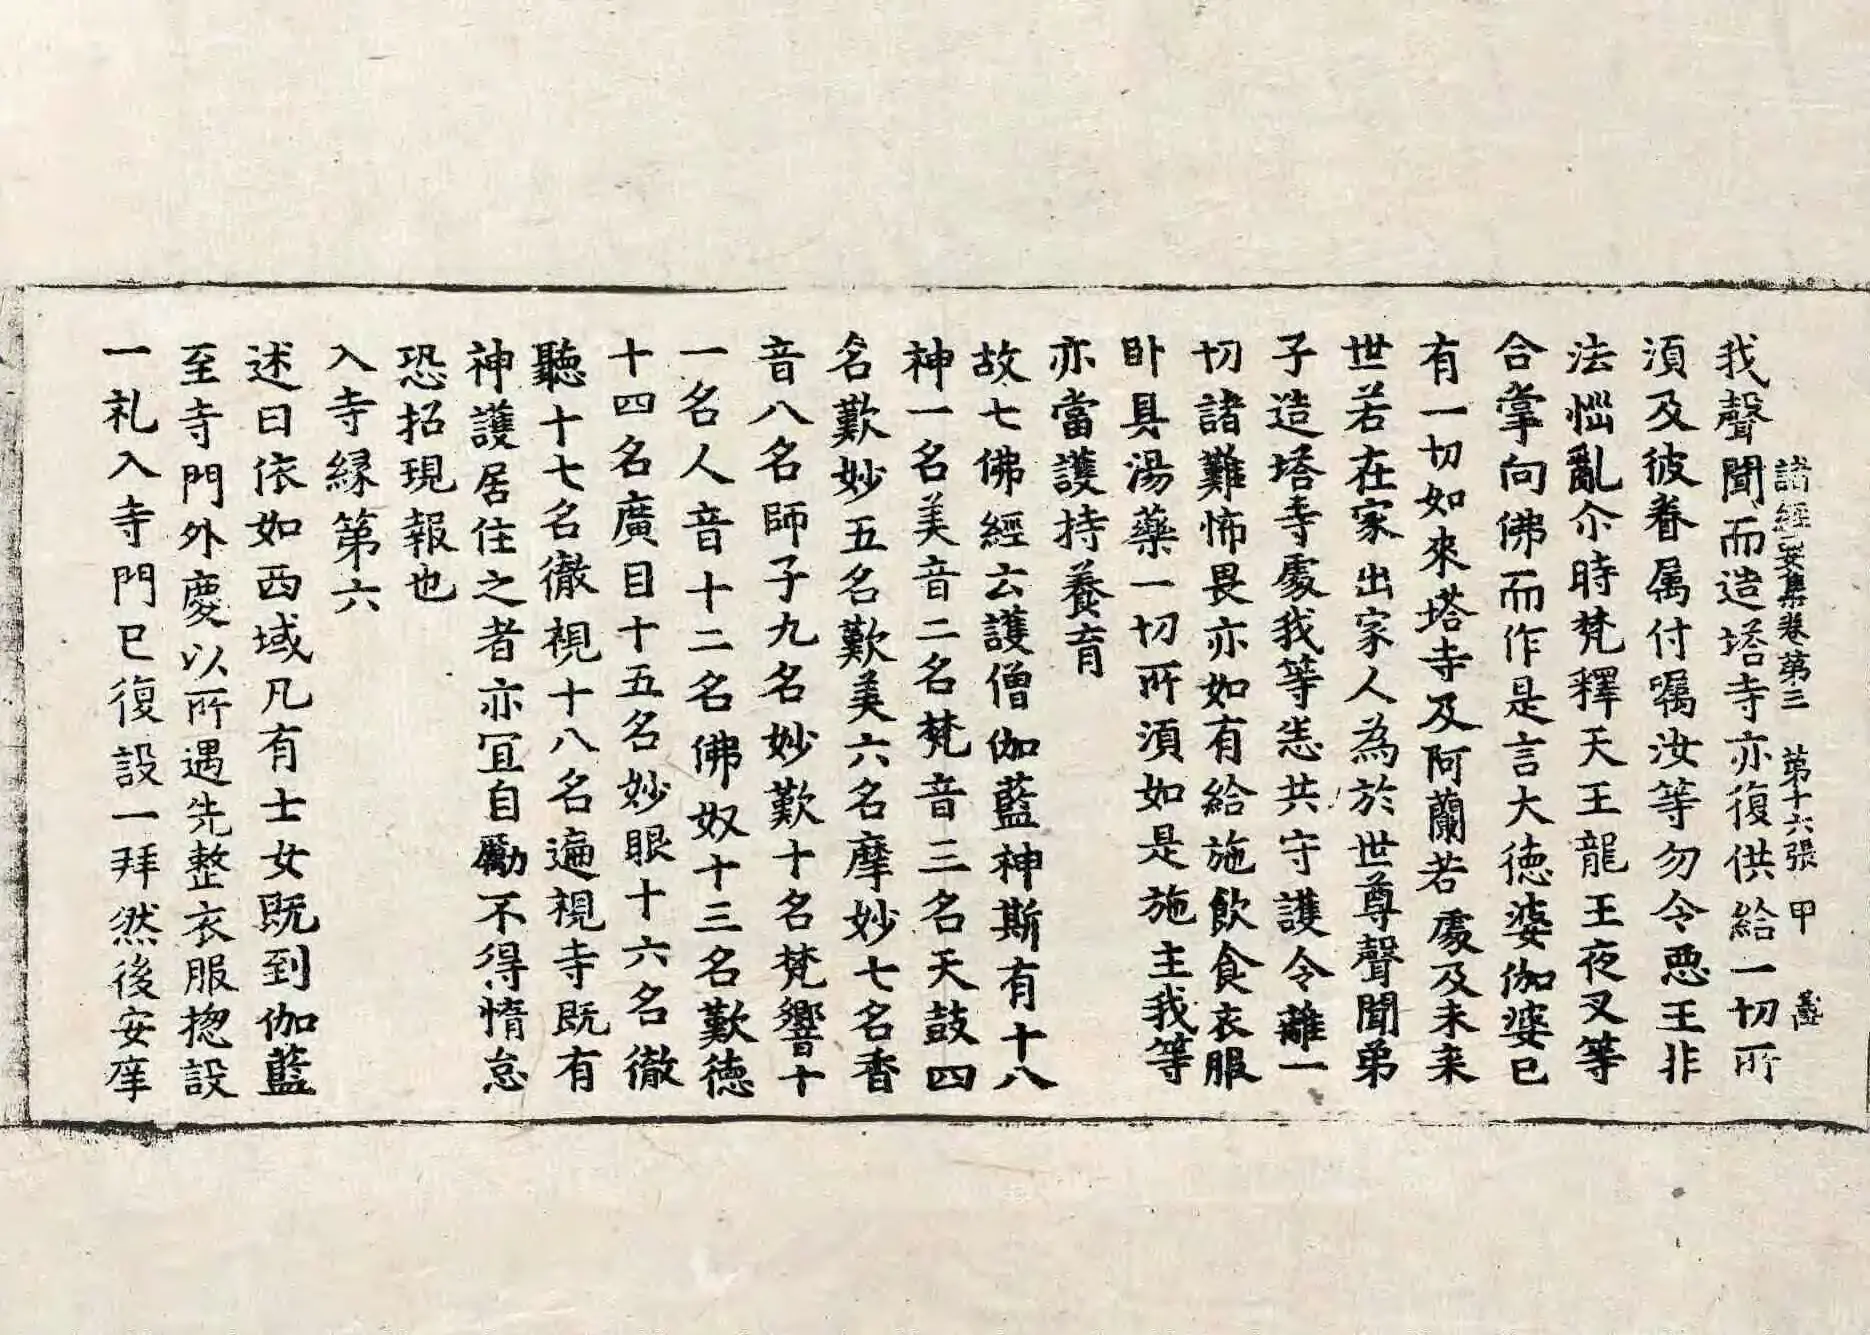 諸經要集卷第三 第十六張 甲
我聲聞而造塔寺亦復供給一切所
須及彼眷属付囑汝等勿令惡王非
法惱亂尒時梵釋天王龍王夜叉等
合掌向佛而作是言大德婆伽婆已
有一切如來塔寺及阿蘭若處及未来
世若在家出家人為於世尊聲聞弟
子造塔寺處我等恙共守護令離一
切諸難怖畏亦如有給施飲食衣服
卧具湯藥一切所湏如是施主我等
亦當護持養育
故七佛經云護僧伽藍神斯有十八
神一名美音二名梵音三名天鼓四
名歎妙五名歎美六名摩妙七名香
音八名師子九名妙歎十名梵響十
一名人音十二名佛奴十三名歎德
十四名廣目十五名妙眼十六名徹
聽十七名徹視十八名遍視寺既有
神護居住之者亦冝自勵不得惰怠
恐招現報也
入寺縁第六
述曰依如西域凡有士女既到伽藍
至寺門外慶以所遇先整衣服揔設
一礼入寺門已復設一拜然後安庠